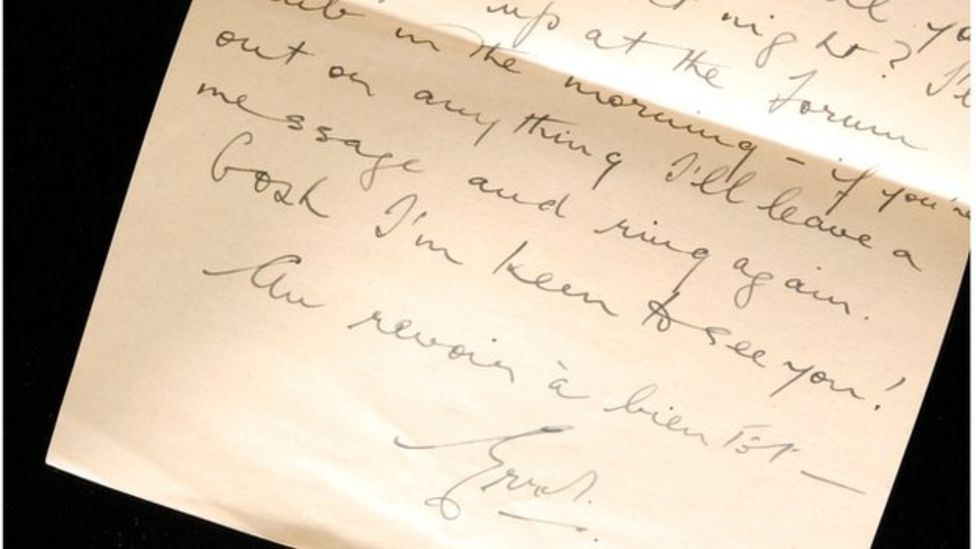 ll yo
t night? I'll
up at the Forum
in the morning - if you're
out on anything I'll leave a
message and ring again.
Gosh I'm keen to see you!
Au revoir à bientôt —
Errol.